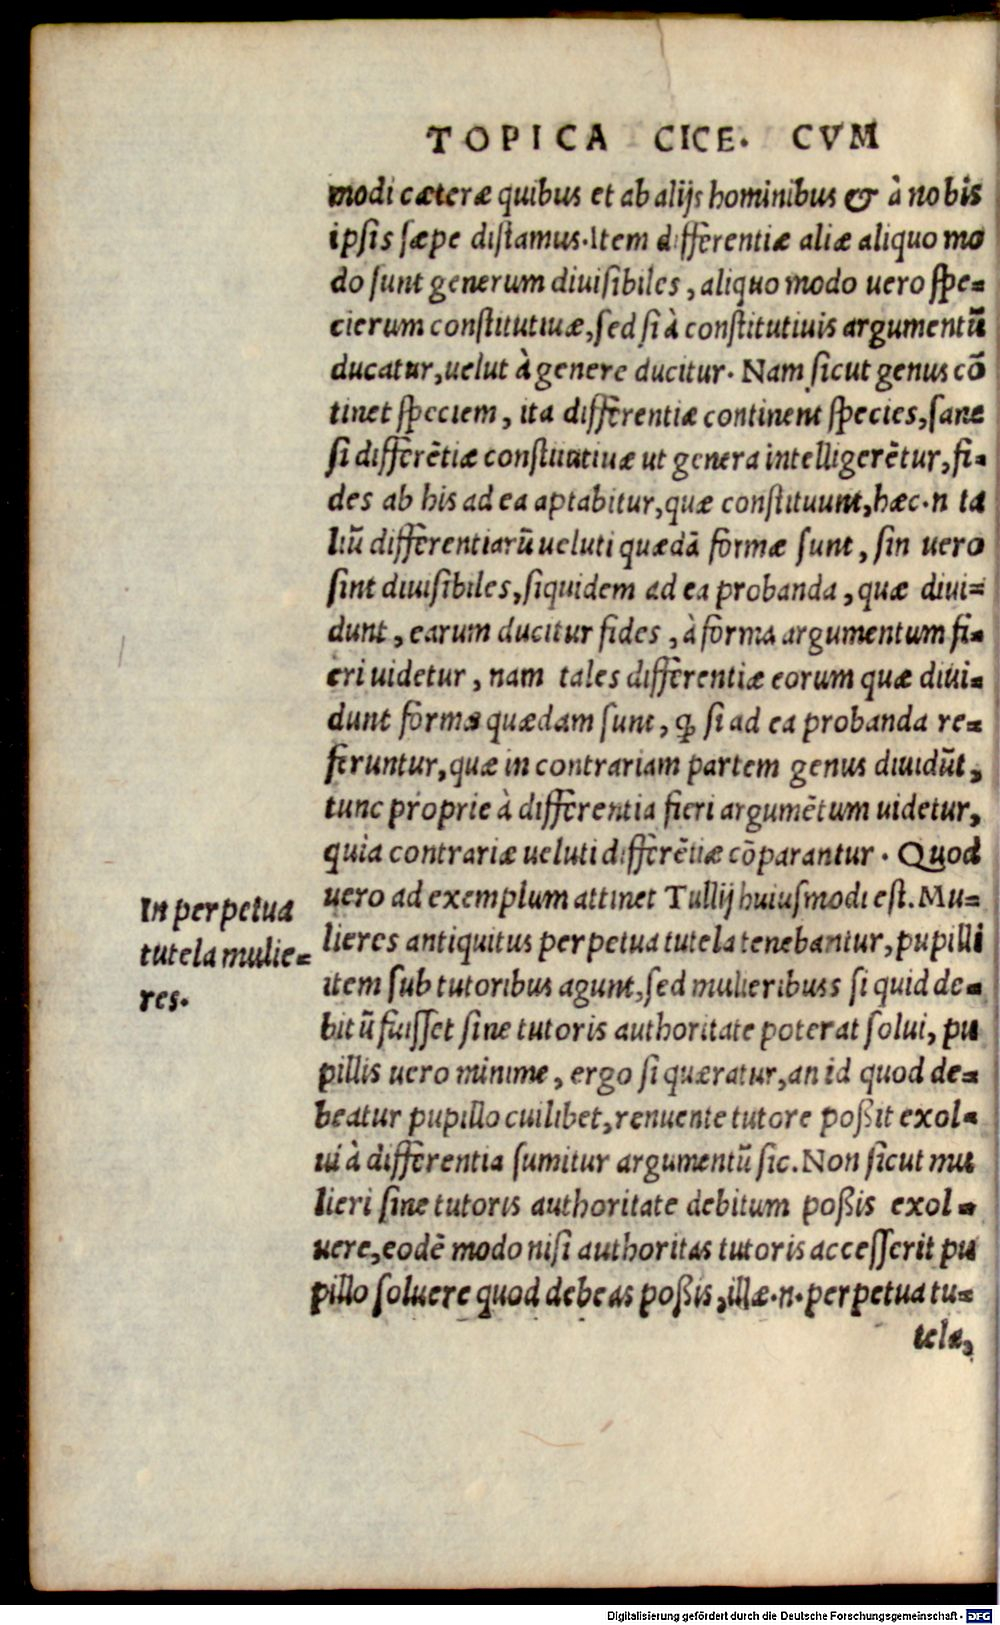 TOPICA CICE. CVM
modi cæteræ quibus et ab alijs hominibus & à nobis
ipsis sæpe distamus. Item differentiæ aliæ aliquo mo
do sunt generum diuisibiles, aliquo modo uero spe-
cierum constitutiuæ, sed si à constitutiuis argumentū
ducatur, uelut à genere ducitur. Nam sicut genus cō
tinet speciem, ita differentiæ continent species, sane
si differētiæ constitutiuæ ut genera intelligerētur, fi-
des ab his ad ea aptabitur, quæ constituunt, hæc.n ta
liū differentiarū ueluti quædā formæ sunt, sin uero
sint diuisibiles, siquidem ad ea probanda, quæ diui-
dunt, earum ducitur fides, à forma argumentum fi-
eri uidetur, nam tales differentiæ eorum quæ diui-
dunt forma quædam sunt, ꝙ si ad ea probanda re-
feruntur, quæ in contrariam partem genus diuidūt,
tunc proprie à differentia fieri argumētum uidetur,
quia contrariæ ueluti differētiæ cōparantur. Quod
uero ad exemplum attinet Tullij huiusmodi est. Mu-
lieres antiquitus perpetua tutela tenebantur, pupilli
item sub tutoribus agunt, sed mulieribuss si quid de-
bitū fuisset sine tutoris authoritate poterat solui, pu
pillis uero minime, ergo si quæratur, an id quod de-
beatur pupillo cuilibet, renuente tutore poßit exol-
ui à differentia sumitur argumentū sic. Non sicut mu
lieri sine tutoris authoritate debitum poßis exol-
uere, eodē modo nisi authoritas tutoris accesserit pu
pillo soluere quod debeas poßis, illæ.n. perpetua tu-
tela,
In perpetua
tutela mulie-
res.
Digitalisierung gefördert durch die Deutsche Forschungsgemeinschaft - DFG